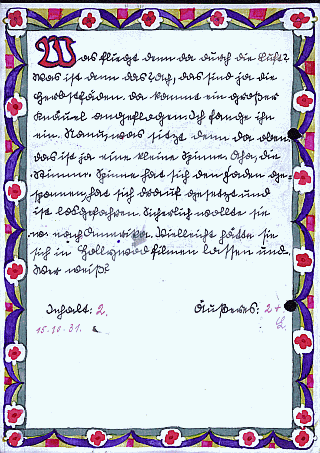 Was fliegt denn da durch die Luft?
Was ist denn das? Ach, das sind ja die
Herbstfäden. Da kommt ein großer
Knäuel angeflogen. Ich fange ihn
ein. Nanu, was sitzt denn da oben.
das ist ja eine kleine Spinne. Aha, die
Spinne hat sich den Faden ge-
sponnen, hat sich drauf gesetzt und
ist losgefahren. Sicherlich wollte sie
nach Amerika. Vielleicht hätte sie
sich in Hollywood filmen lassen und.
Wer weiß?
Inhalt: 2. Äußeres: 2+
15.10.31.